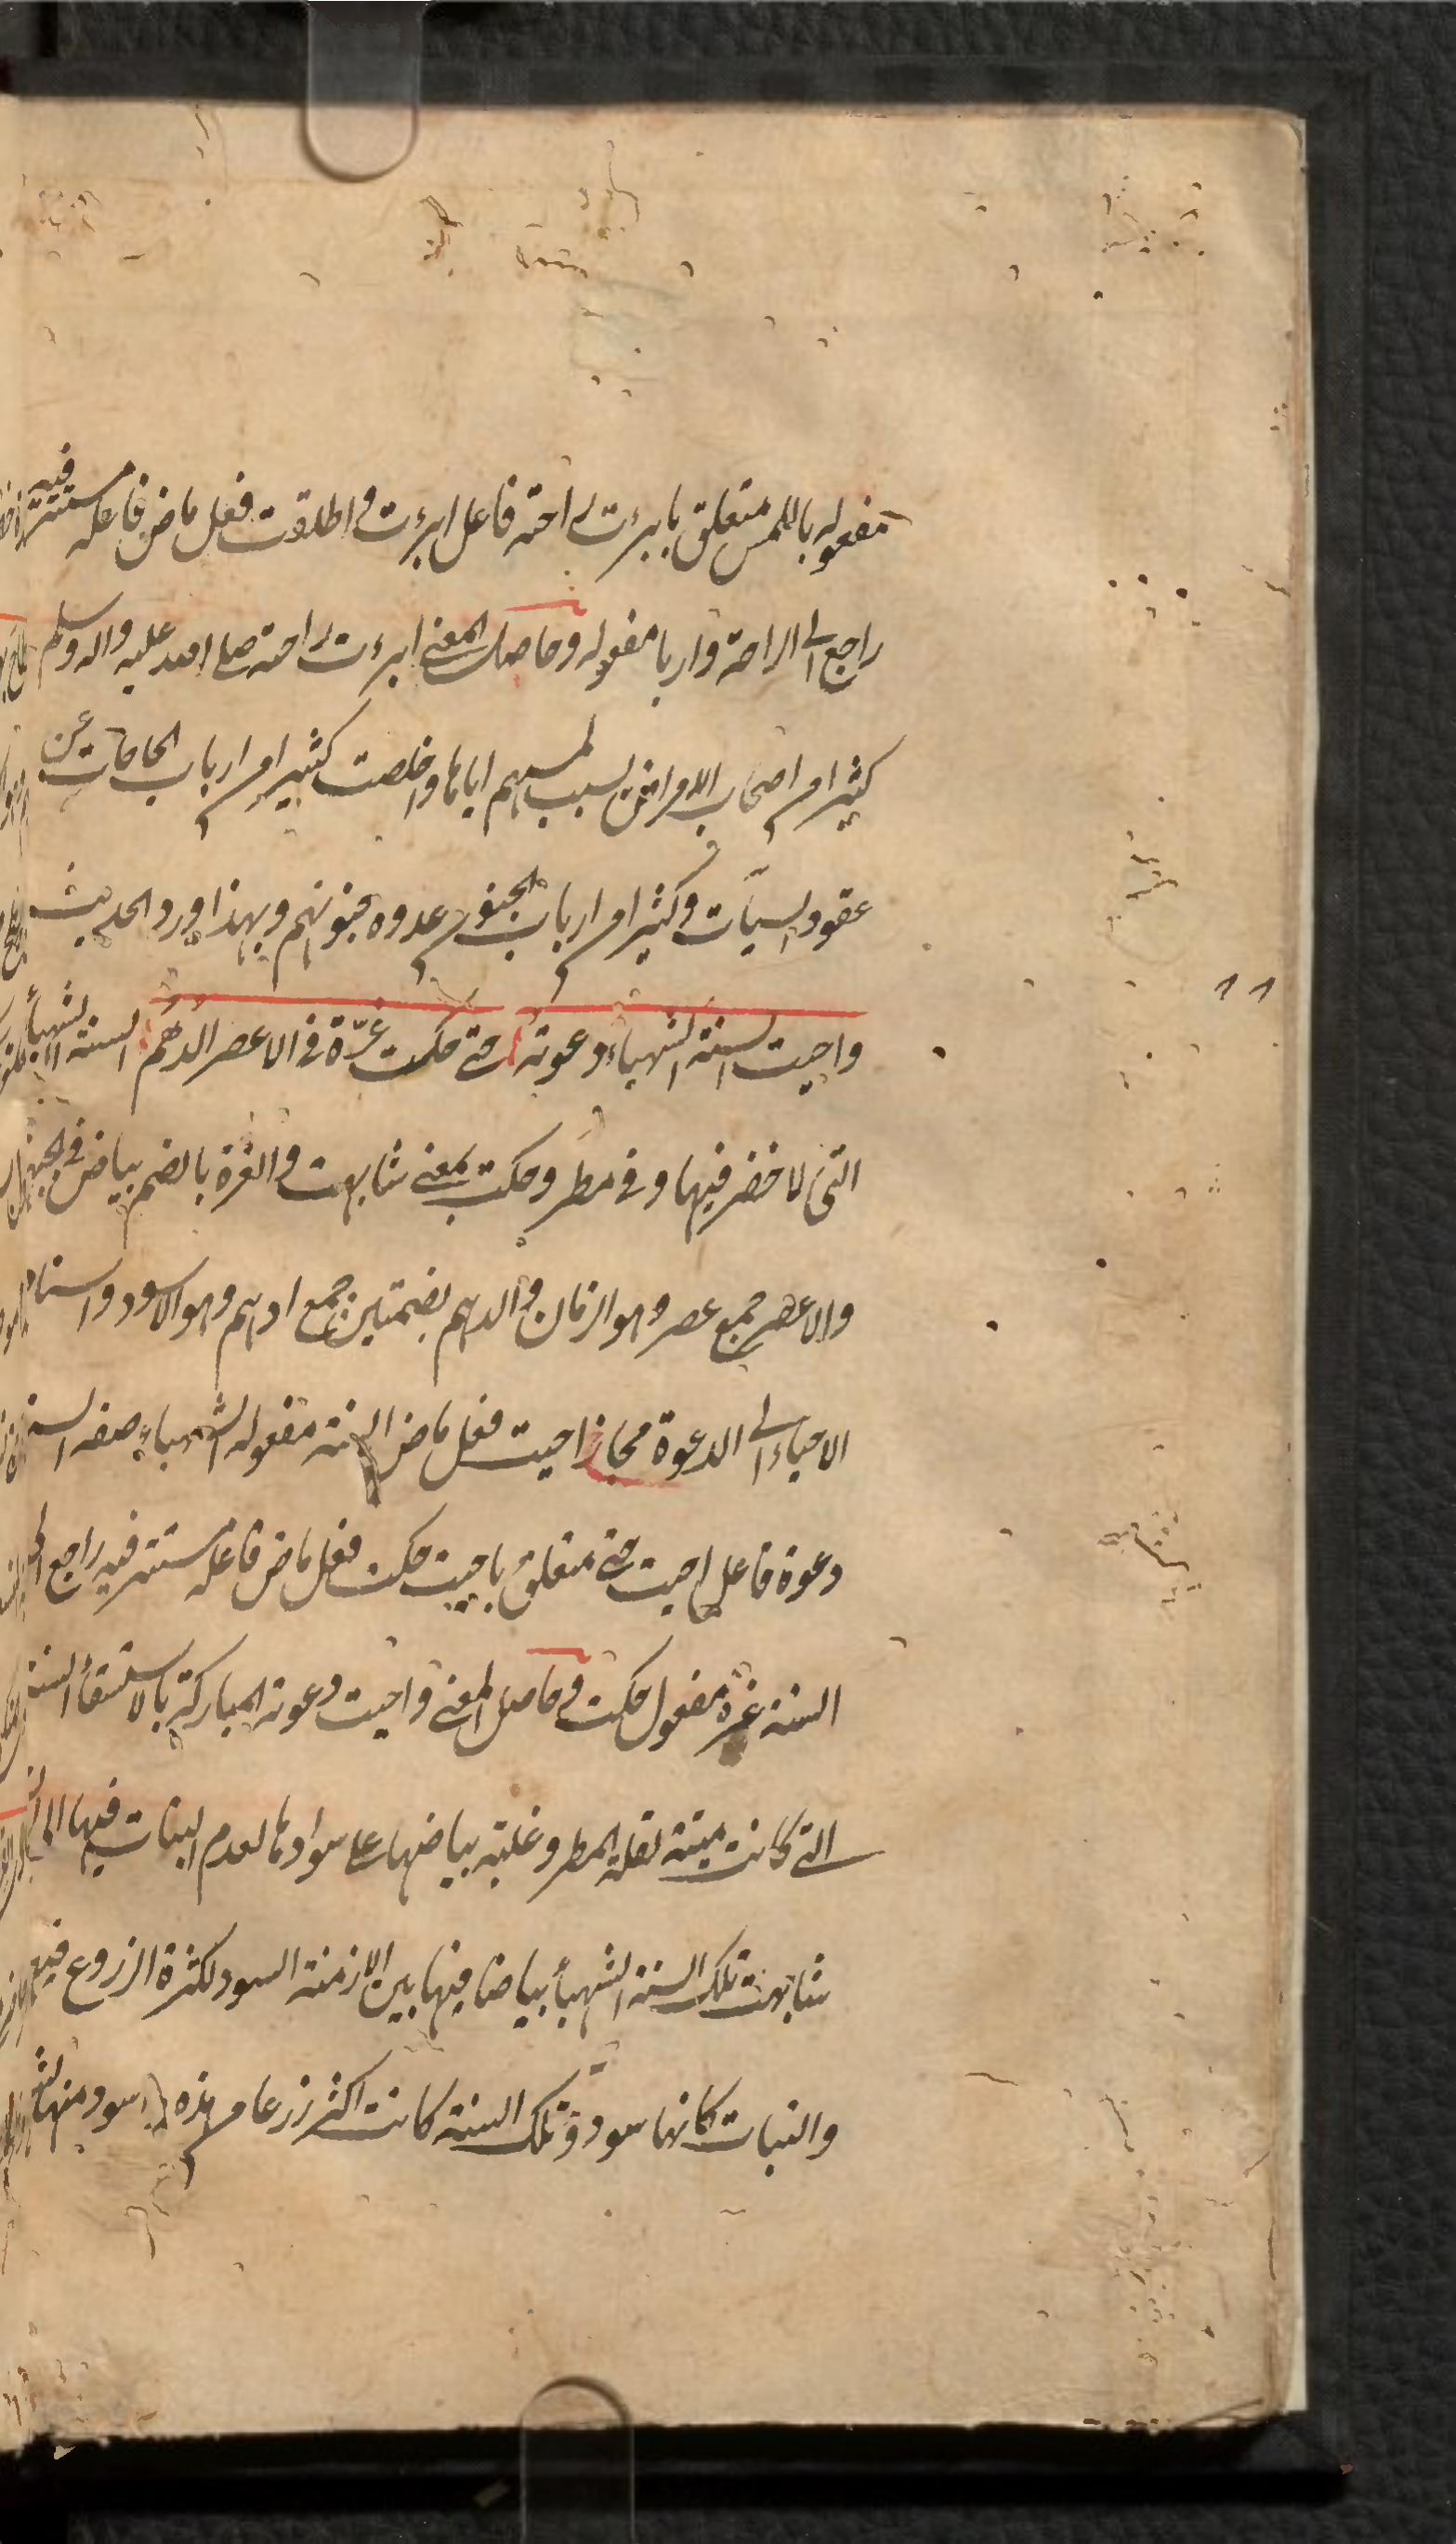 مفعوله باللمس متعلق بابرءت راحته فاعل ابرءت و اطلقت فعل ماض فاعله مستتر فيه
راجع الى الراحة واربا مفعوله وحاصل المعنى ابرءت راحته صلى الله عليه واله وسلم
كثيرا من اصحاب الامراض بسبب لمسهم اياها واخلصت كثيرا من ارباب الحاجات عن
عقود السيآت وكثيرا من ارباب الجنون عدوه جنونهم وبهذا ورد الحديث
واحيت السنة الشهباء دعوته حتى حكت غرّة فى الاعصر الدُهُم السنة الشهبأ
التى لا خضر فيها و فى مطر وحكت بمعنى شابهت و الغرة بالضم بياض فى
والاعصر جمع عصر وهو الزمان و الدهم بضمتين جمع ادهم وهو الاسود واسناد
الاحياء الى الدعوة مجاز احيت فعل ماض السنة مفعوله الشهباء صفة السنة
دعوة فاعل احيت حتى متعلق باحيت حكت فعل ماض فاعله مستتر فيه راجع الى
السنة غرة مفعول حكت و حاصل المعنى واحيت دعوته المباركة بالاستسقأ السنة
التى كانت ميتة لقلة المطر وغلبة بياضها على سوادها لعدم النبات فيها الى ان
شابهت تلك السنة الشهبأ بياضا فيها بين الازمنة السود لكثرة الزروع فيها
والنبات كانها سود و تلك السنة كانت اكثر زرعا من هذه سود منها
١١